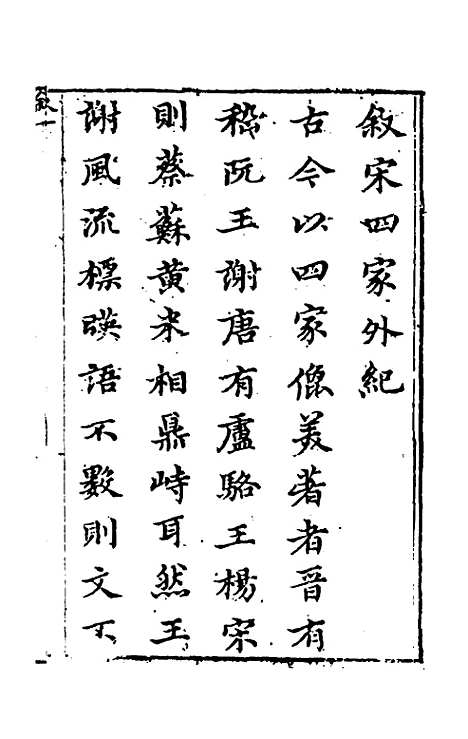 敘宋四家外紀
古今以四家儷美著者晉有
嵇阮王謝唐有盧駱王楊宋
則蔡蘇黃米相鼎峙耳然王
謝風流標暎語不數則文不
敘一